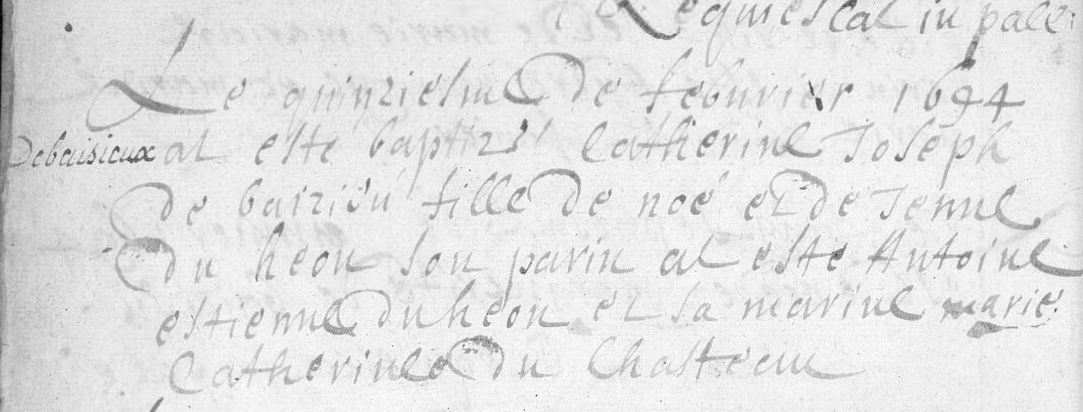 Requiescat in pace
Le quinziesme De febuvrier 1694
Debaisieux at este baptizé Catherine Joseph
De baizieu fille De noé et de Jenne
Du heon son parin at este Antoine
estienne Du heon et sa marine marie
Catherine Du Chasteau